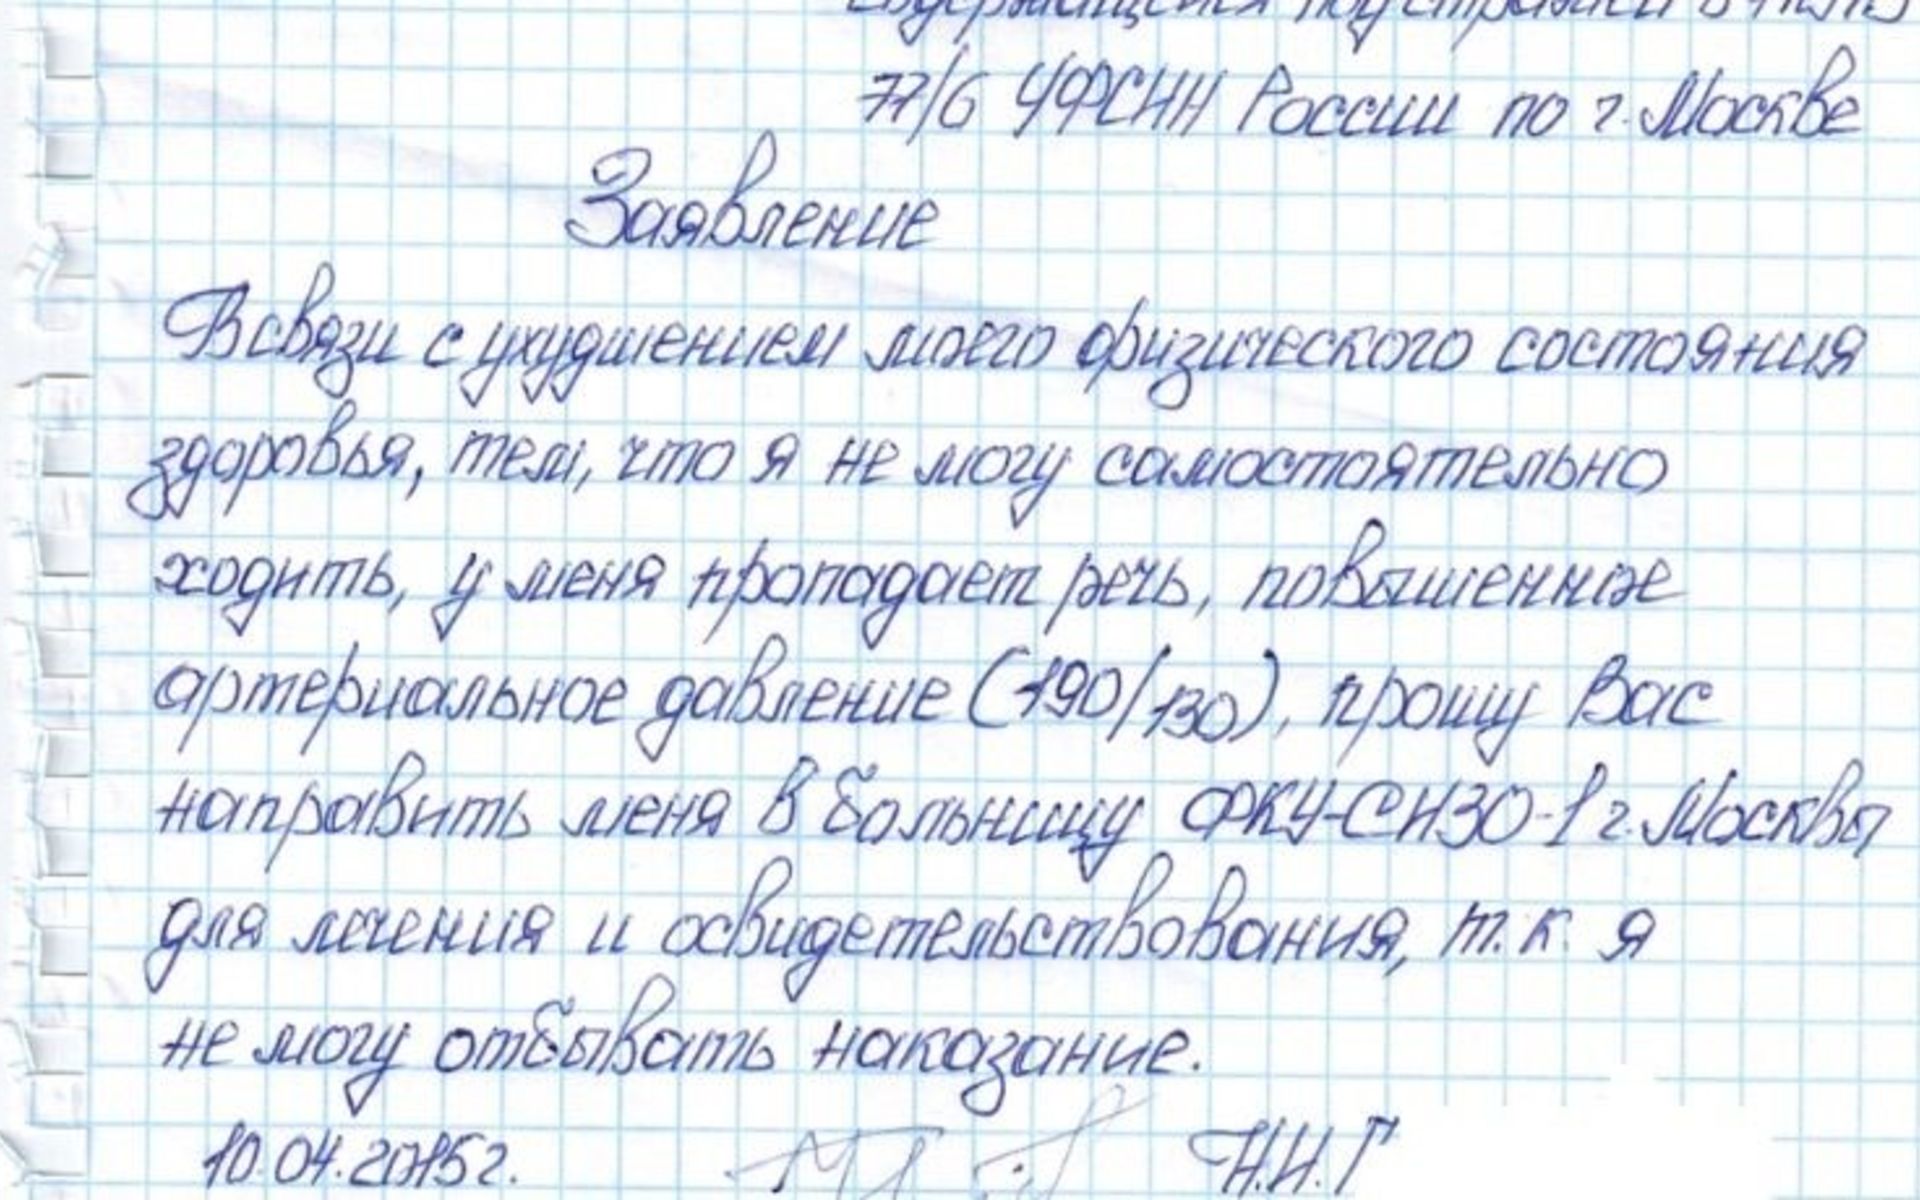 содержащейся под стражей в
77/6 УФСИН России по г. Москве
Заявление
В связи с ухудшением моего физического состояния
здоровья, тем, что я не могу самостоятельно
ходить, у меня пропадает речь, повышенное
артериальное давление (190/130), прошу Вас
направить меня в больницу ФКУ-СИЗО-1 г. Москвы
для лечения и освидетельствования, т.к. я
не могу отбывать наказание.
10.04.2015г. Н.И.Г